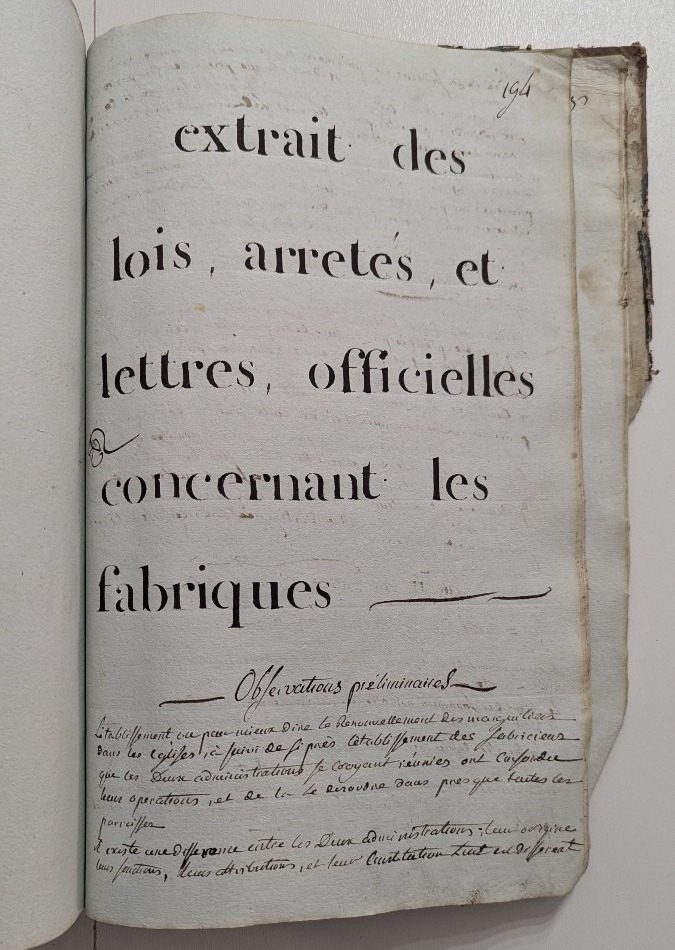 194
extrait des
lois, arretés, et
lettres, officielles
concernant les
fabriques
Observations préliminaires
L'établissement ou pour mieux dire le Renouvellement des marguilliers
dans les églises, a suivi de si près l'établissement des fabriciens
que les Deux administrations se croyant réunies ont confondu
leurs operations, et de la le desordre dans presque toutes les
paroisses
il existe une difference entre les Deux administrations, leur origine
leurs fonctions, leurs attributions, et leur Constitution tout est different